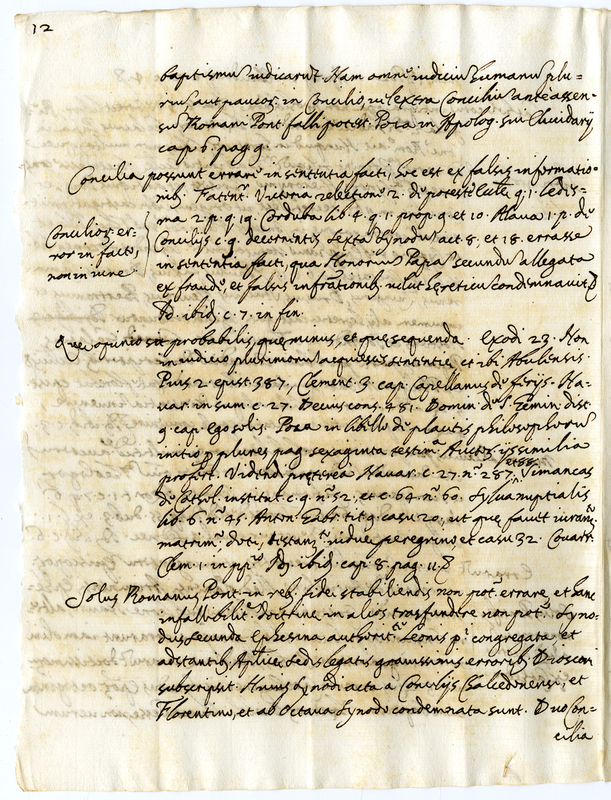 12
baptismũ iudicarũt. Nam omne iudiciũ humanũ plu-
riũ, aut paucoȝ in Concilio, uel extra Conciliũ ante assen-
sũ Romani Pont. falli potest. Poza in Apolog. sui Elucidarij
cap. 6. pag. 9.
Concilia possunt errare in sententia facti, hoc est ex falsis informatio-
nib. Fatentr. Victoria relectione 2. de potest. Eccle. q. 1. Ledes-
ma 2. p. q. 19. Corduba lib. 4. q. 1. prop. 9. et 10. Alaua 1. p. de
Concilioȝ er-
ror in facto,
non in iure
Concilijs c. 9. decernentis sexta Synodus act. 8. et 18. errasse
in sententia facti, qua Honorius Papa secundũ allegata
ex fraude, et falsis infrationib. uelut hereticũ condemnauit.
Id. ibid. c. 7. in fin.
Que opinio sit probabilis, que minus, et que sequenda. Exodi 23. Non
in iudicio plurimorũ acquiesces sententie, et ibi Abulensis.
Pius 2. epist. 387. Clement. 3. cap. Capellanus de ferijs. Na-
uar. in sum. c. 27. Decius cons. 481. Domin. de S. Gemin. dist.
9. cap. Ego solis. Poza in libello de placitis philosophorũ
initio p plures pag. sexaginta testim. Auctoȝ ijs similia
profert. Videndi preterea Nauar. c. 27. n. 287. et 88. Simancas
de Cathol. institut. c. 9. n. 52. et c. 64. n. 60. Sylua nuptialis
lib. 6. n. 45. Anton. Gabr. tit. 9. casu 20, ut que fauet iurand.
matrim. doti, testam. uidue peregrino et casu 32. Couarr.
Clem. 1. in pp. Id. ibid. cap. 8. pag. 11.
Solus Romanus Pont. in reb. fidei stabiliendis non pot. errare, et hanc
infallibilit. doctrine in alios trasfundere non pot. Syno-
dus secunda Ephesina authorit. Leonis p. congregata et
adstantib. Aplice Sedis legatis grauissimis errorib. Dioscori
subscripsit. Huius Synodi acta a Concilijs Calcedonensi, et
Florentino, et ab Octaua Synodo condemnata sunt. Duo Con-
cilia